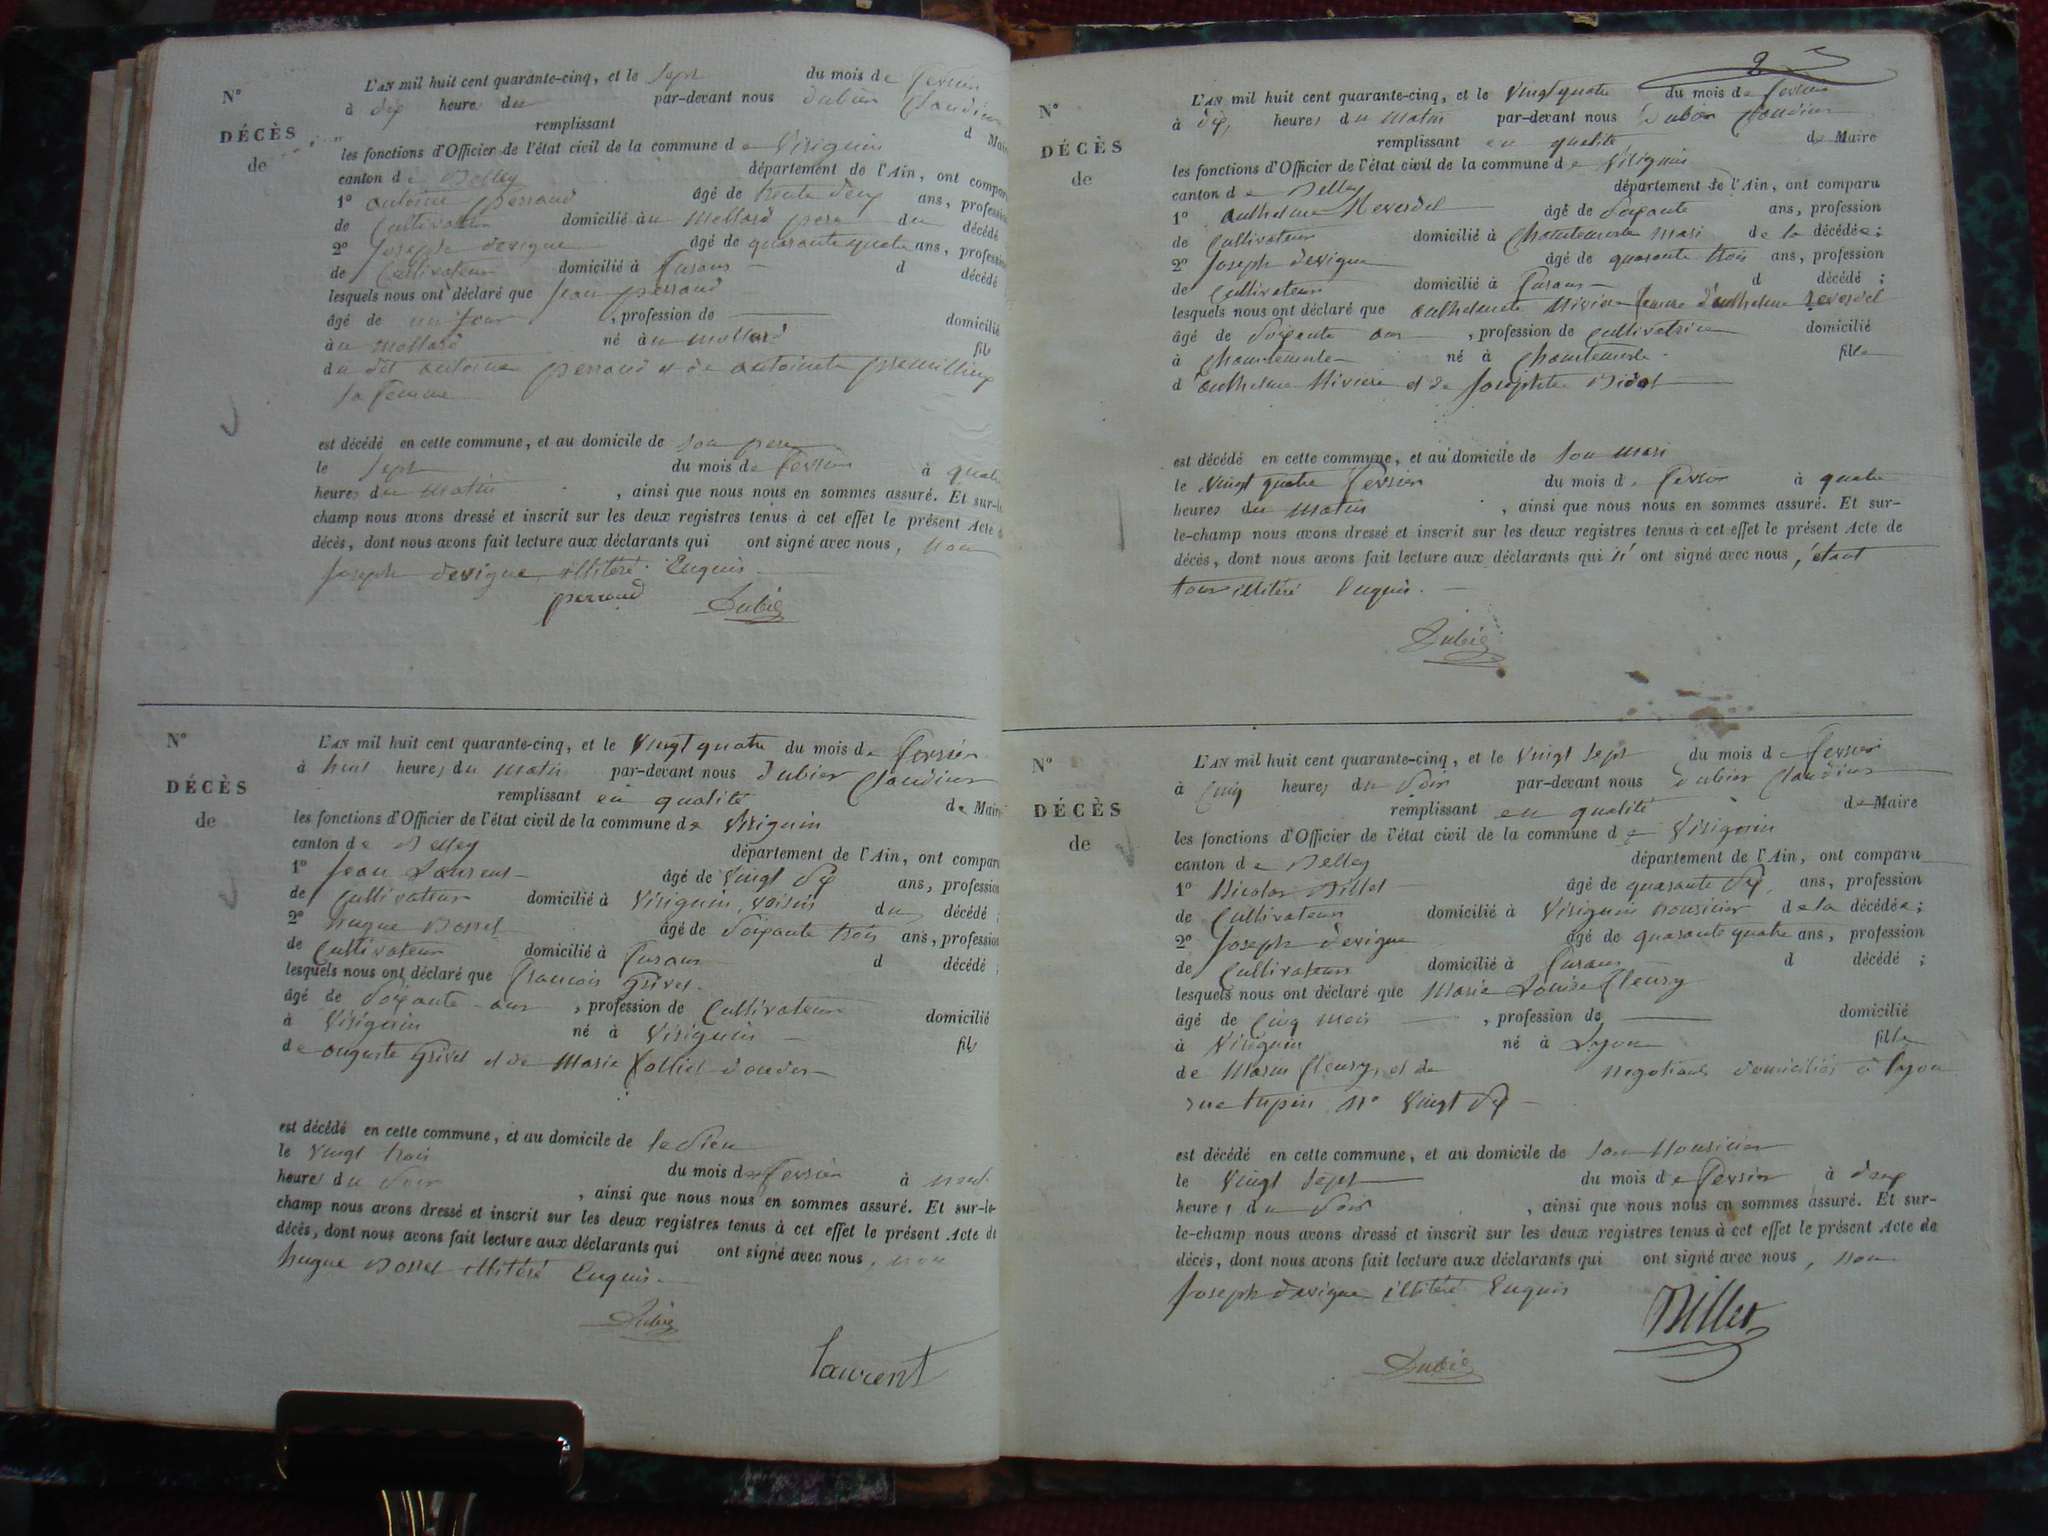 N°
DÉCÈS
de
L'AN mil huit cent quarante-cinq, et le sept du mois de fevrier
à dix heures du par-devant nous Dubier Claudius
remplissant d Maire
les fonctions d'Officier de l'état civil de la commune de Virignin
canton de Belley département de l'Ain, ont comparu
1° antoine perraud âgé de trente deux ans, profession
de Cultivateur domicilié au mollard pere du décédé
2° Joseph devigne âgé de quarante quatre ans, profession
de Cultivateur domicilié à d décédé
lesquels nous ont déclaré que Jean perraud
âgé de un jour , profession de domicilié
au mollard né au mollard fils
du dit antoine perraud et de antoinette
sa femme
est décédé en cette commune, et au domicile de son pere
le sept du mois de fevrier à quatre
heures du matin , ainsi que nous nous en sommes assuré. Et sur-le
champ nous avons dressé et inscrit sur les deux registres tenus à cet effet le présent Acte de
décès, dont nous avons fait lecture aux déclarants qui ont signé avec nous, non
Joseph devigne illitéré Enquis
perraud Dubie
N°
DÉCÈS
de
L'AN mil huit cent quarante-cinq, et le vingt quatre du mois de fevrier
à huit heures du matin par-devant nous Dubier Claudius
remplissant en qualité de Maire
les fonctions d'Officier de l'état civil de la commune de Virignin
canton de Belley département de l'Ain, ont comparu
1° Jean Laurent âgé de vingt dix ans, profession
de Cultivateur domicilié à Virignin, voisin du décédé ;
2° hugue âgé de soixante trois ans, profession
de Cultivateur domicilié à d décédé ;
lesquels nous ont déclaré que francois Grivel
âgé de soixante ans , profession de Cultivateur domicilié
à Virignin né à Virignin fils
de auguste Grivel et de Marie
est décédé en cette commune, et au domicile de le sien
le vingt trois du mois de fevrier à neuf
heures du soir , ainsi que nous nous en sommes assuré. Et sur-le-
champ nous avons dressé et inscrit sur les deux registres tenus à cet effet le présent Acte de
décès, dont nous avons fait lecture aux déclarants qui ont signé avec nous, non
hugue illitéré Enquis
Dubie
laurent
2
N°
DÉCÈS
de
L'AN mil huit cent quarante-cinq, et le vingt quatre du mois de fevrier
à dix heures du matin par-devant nous Dubier Claudius
remplissant en qualité de Maire
les fonctions d'Officier de l'état civil de la commune de Virignin
canton de Belley département de l'Ain, ont comparu
1° anthelme Reverdel âgé de soixante ans, profession
de Cultivateur domicilié à Chantemerle mari de la décédée ;
2° Joseph devigne âgé de quarante trois ans, profession
de Cultivateur domicilié à d décédé ;
lesquels nous ont déclaré que anthelmette Riviere femme d'anthelme Reverdel
âgé de soixante ans , profession de Cultivatrice domicilié
à Chantemerle né à Chantemerle fille
d anthelme Riviere et de Josephte
est décédé en cette commune, et au domicile de son mari
le vingt quatre fevrier du mois de fevrier à quatre
heures du matin , ainsi que nous nous en sommes assuré. Et sur-
le-champ nous avons dressé et inscrit sur les deux registres tenus à cet effet le présent Acte de
décès, dont nous avons fait lecture aux déclarants qui n' ont signé avec nous, étant
tous illitéré Enquis.
Dubie
N°
DÉCÈS
de
L'AN mil huit cent quarante-cinq, et le vingt sept du mois de fevrier
à cinq heures du soir par-devant nous Dubier Claudius
remplissant en qualité de Maire
les fonctions d'Officier de l'état civil de la commune de Virignin
canton de Belley département de l'Ain, ont comparu
1° Nicolas Billet âgé de quarante dix ans, profession
de Cultivateur domicilié à Virignin nouricier de la décédée ;
2° Joseph devigne âgé de quarante quatre ans, profession
de Cultivateur domicilié à d décédé ;
lesquels nous ont déclaré que Marie Louise fleury
âgé de cinq mois , profession de domicilié
à Virignin né à Lyon fille
de Marin fleury, et de negotiants domiciliés à lyon
rue tupin N° vingt dix
est décédé en cette commune, et au domicile de son Nouricier
le vingt sept du mois de fevrier à deux
heures du soir , ainsi que nous nous en sommes assuré. Et sur-
le-champ nous avons dressé et inscrit sur les deux registres tenus à cet effet le présent Acte de
décès, dont nous avons fait lecture aux déclarants qui ont signé avec nous, non
Joseph devigne illitéré Enquis
Billet
Dubie